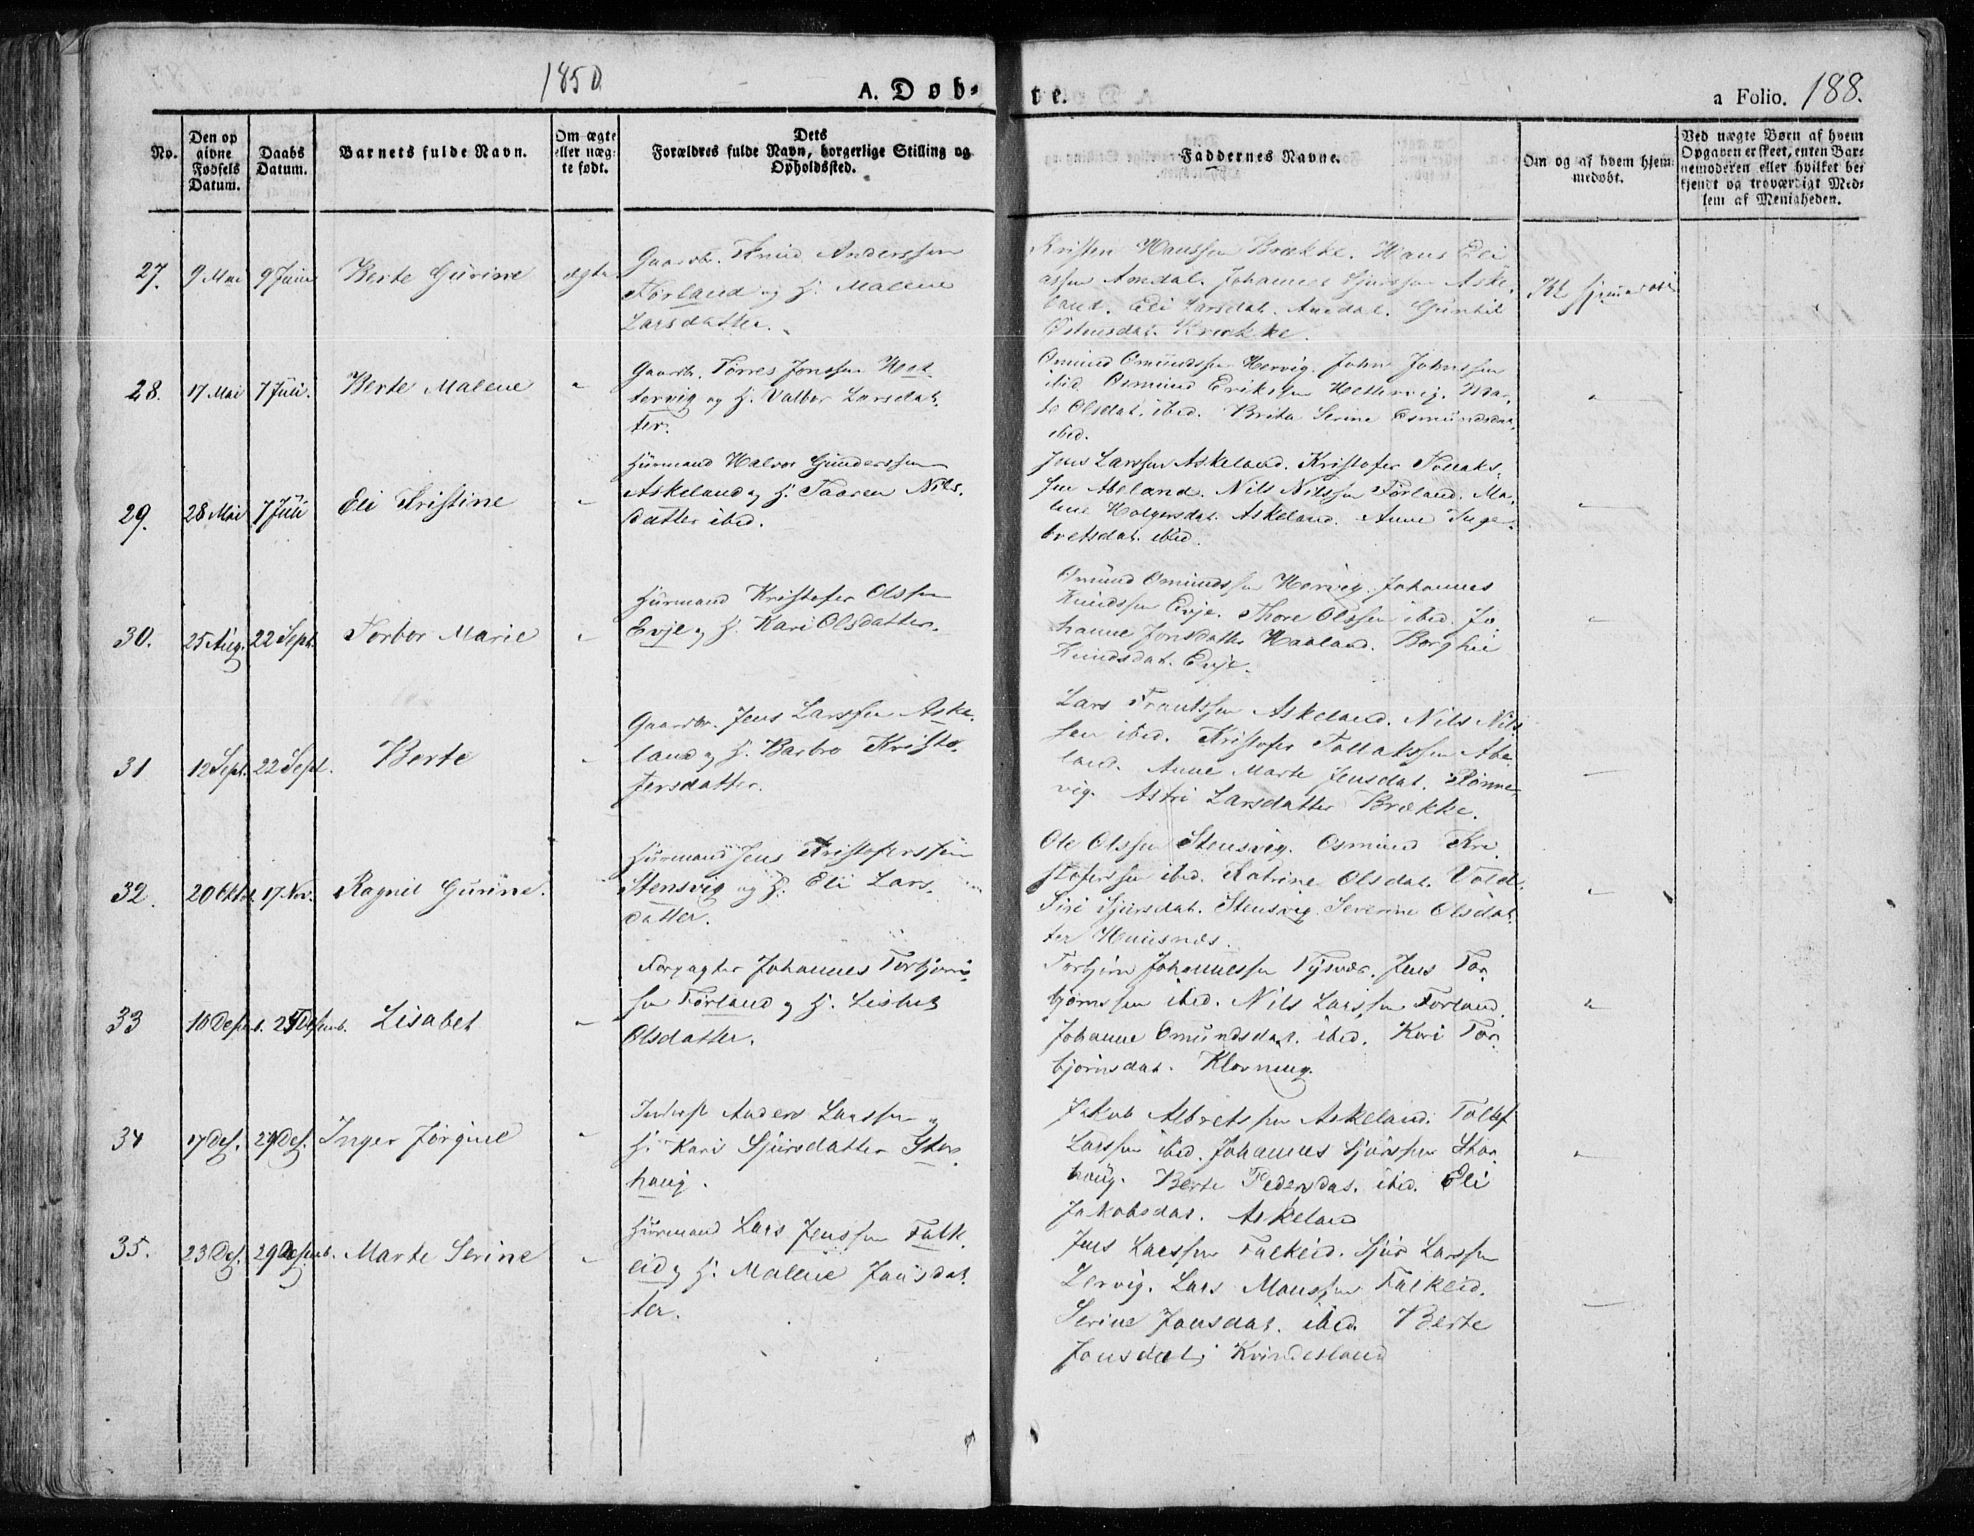 1850
A. Døb-
te.
a Folio. 188.
No.
Den op
givne
Fødsels
Datum.
Daabs
Datum.
Barnets fulde Navn.
Om ægte
eller uæg-
te født.
Dets
Forældres fulde Navn, borgerlige Stilling og
Opholdssted.
Faddernes Navne.
Om og af hvem hjem-
medøbt.
Ved uægte Børn af hvem
Opgaven er skeet, enten Bar-
nemoderen eller hvilket be-
kjendt og troværdigt Med-
lem af Menigheden.
27. 9 Mai 9 Juni Berte Gurine ægte
Gaardb. Knud Anderssen
Førland og H. Malene
Larsdatter.
Kristen Hanssen Brække. Hans Eli
assen Amdal. Johannes Sjurssen Aske-
land. Eli Larsdat. Amdal. Gunhil
Østensdat. Brække.
28. 17 Mai 7 Juli. Berte Malene "
Gaardb. Tørres Jonssen Het-
tervig og H. Valbor Larsdat-
ter.
Omund Omundssen Hervig. John Johnssen
ibid Osmund Erikssen Hettervig. Mar-
te Olsdat. ibid. Brita Serine Osmundsdat.
ibid.
"
29. 28 Mai 7 Juli Eli Kristine "
Huusmand Halvor Gunderssen
Askeland og H. Taaren Nils-
datter ibid.
Jens Larssen Askeland. Kristofer Tollaks-
sen Abeland. Nils Nilssen Førland. Ma-
lene Holgersdat. Askeland. Anne Inge-
bretsdat. ibid.
30. 25 Aug. 22 Sept. Torbor Marie "
Huusmand Kristofer Olssen
Evje og H. Kari Olsdatter.
Omund Omundssen Hervig. Johannes
Knudssen Evje. Thore Olssen ibid. Jo-
hanne Jonsdatter Haaland. Borghil
Knudsdat. Evje.
"
31 12 Sept. 22 Sept. Berte "
Gaardbr. Jens Larssen Aske-
land og H. Barbro Kristo-
fersdatter.
Lars Frantssen Askeland. Nils Nils
sen ibid. Kristofer Tollakssen Abe-
land. Anne Marte Jensdat. Rønne-
vig. Astri Larsdatter Brække.
32. 20 Oktob. 17 Nov. Ragnil Gurine. "
Huusmand Jens Kristoferssen
Stensvig og H. Eli Lars-
datter.
Ole Olssen Stensvig. Osmund Kri
stoferssen ibid. Katrine Olsdat. Vold.
Siri Sjursdat. Stensvig. Severine Olsdat-
ter Huusnæs.
"
33 10 Desemb. Desemb. Lisabet "
Forpagter Johannes Torbjørn-
sen Førland og H. Lisbet
Olsdatter.
Torbjørn Johannessen Tysvær. Jens Tor-
bjørnssen ibid. Nils Larssen Førland.
Johanne Omundsdat. ibid. Kari Tor-
bjørnsdat. Klovning.
"
34 17 Des. 29 Des. Inger Jørgine "
Inderst Anders Larssen og
H. Kari Sjursdatter Stor-
haug.
Jakob Albretssen Askeland. Tollef
Larssen ibid. Johannes Sjurssen Stor
haug. Berte Pedersdat. ibid. Eli
Jakobsdat. Askeland
35. 23 Des. 29 Desemb. Marte Serine "
Huusmand Lars Jenssen Falk-
eid og H. Malene Jonsdat-
ter.
Jens Larssen Falkeid. Sjur Larssen
Lervig. Lars Monssen Falkeid.
Serine Jonsdat. ibid Berte
Jonsdat. Kvindesland